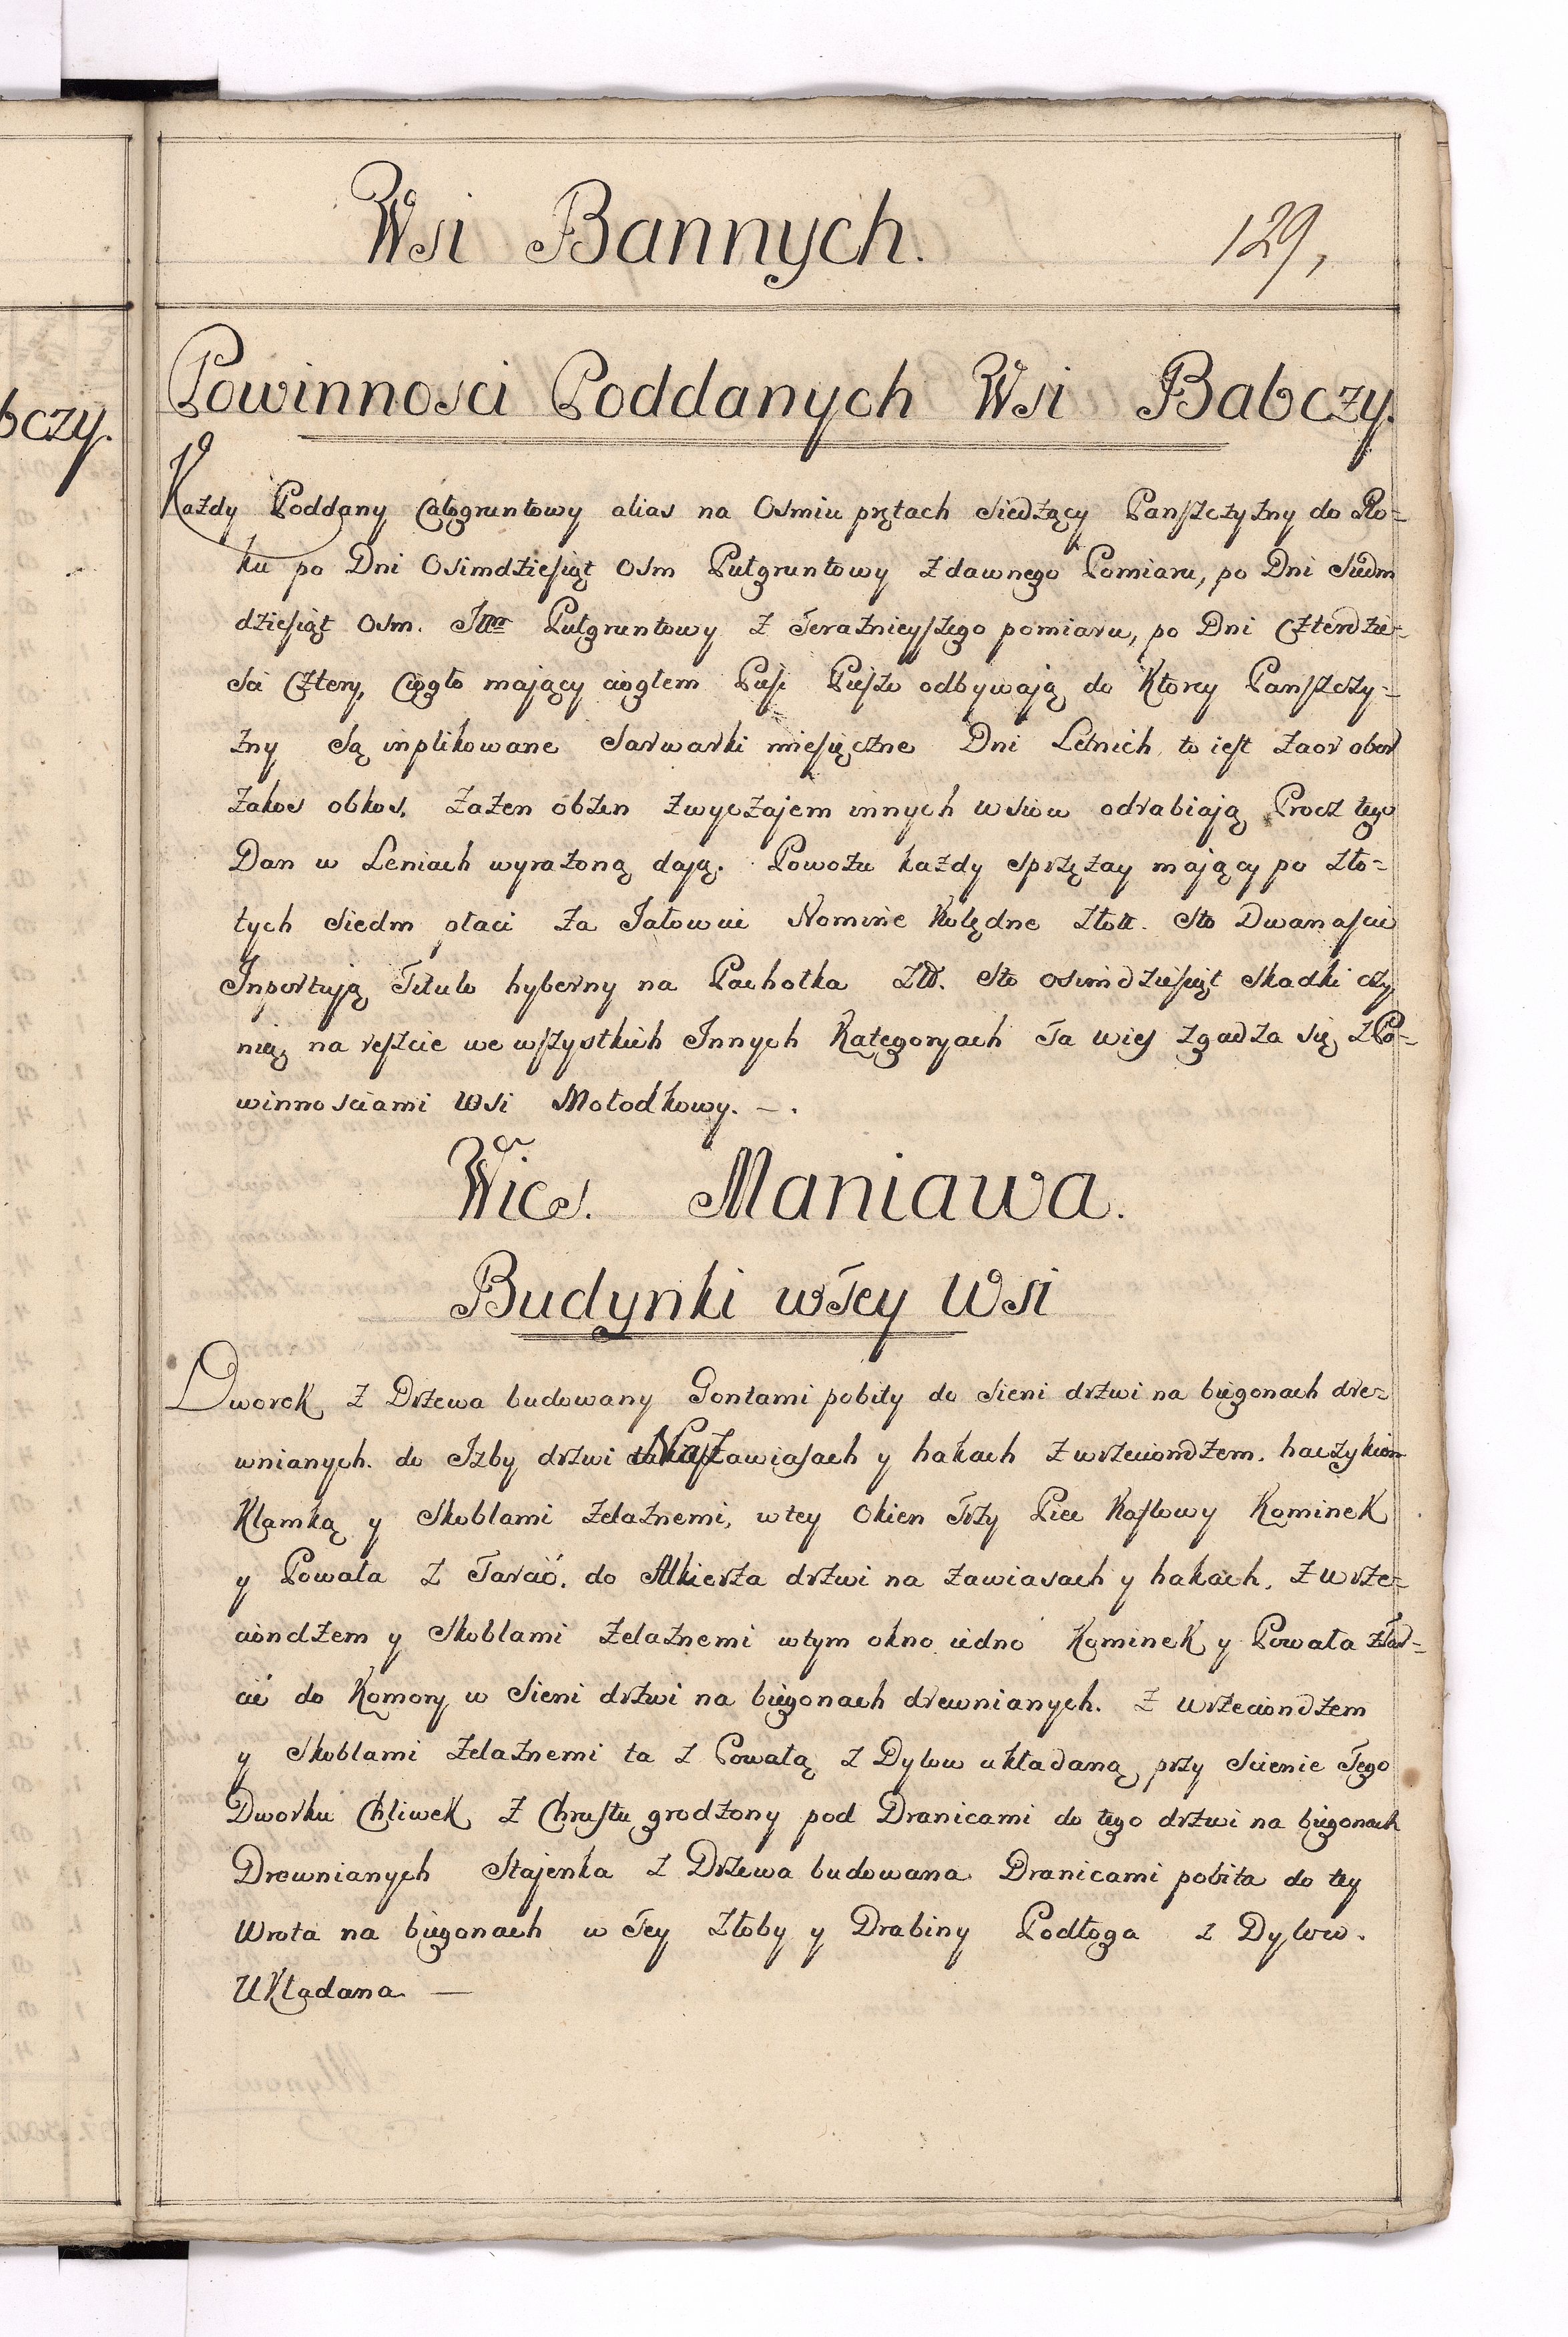 Wsi Bannych.
129,
bczy.
Powinnosci Poddanych Wsi Babczy.
Każdy Poddany Całogruntowy alias na Osmiu prętach siedzący Panszczyzny do Ro-
ku po Dni Osimdziesiąt osm Pułgruntowy z dawnego Pomiaru, po Dni Siedm
dziesiąt osm. Pułgruntowy z Teraznieyszego pomiaru, po Dni Czterdzie-
sci Cztery, Cięgło mający cięgłem Piesi Pieszo odbywają do Ktorey Panszczy-
zny są inplikowane Sarwarki miesięczne Dni Letnich to iest zaor obor
zakos obkos, zażen obżen zwyczajem innych wsiow odrabiają Procz tego
Dan w Leniach wyrażoną dają. Powozu każdy sprzężay mający po zło-
tych siedm płaci za Jałowice Nomine Kolędne złott. Sto Dwanascie
Inportują Titulo hyberny na Pachołka Złł. Sto osimdziesiąt Skadki czy
nią na reszcie we wszystkich Innych Kategoryach Ta wies zgadza się z Po-
winnosciami Wsi Mołodkowy. —.
Wies. Maniawa.
Budynki w Tey Wsi
Dworek z Drzewa budowany Gontami pobity do Sieni drzwi na biegonach dre-
wnianych. do Izby drzwi Na zawiasach y hakach z wrzeciondzem. haczykiem
Klamką y Skoblami zelaznemi, w tey Okien Trzy Piec Kaflowy Kominek
y Powała z Tarcic. do Alkierza drzwi na zawiasach y hakach, z wrze-
ciondzem y Skoblami zelaznemi w tym okno iedno Kominek y Powała z Tar-
cic do Komory w Sieni drzwi na biegonach drewnianych. z wrzeciondzem
y Skoblami zelaznemi ta z Powałą z Dylow układaną przy Scienie Tego
Dworku Chliwek z Chrustu grodzony pod Dranicami do tego drzwi na biegonach
Drewnianych Stajenka z Drzewa budowana Dranicami pobita do tey
Wrota na biegonach w Tey Złoby y Drabiny Podłoga z Dylow.
Układana —